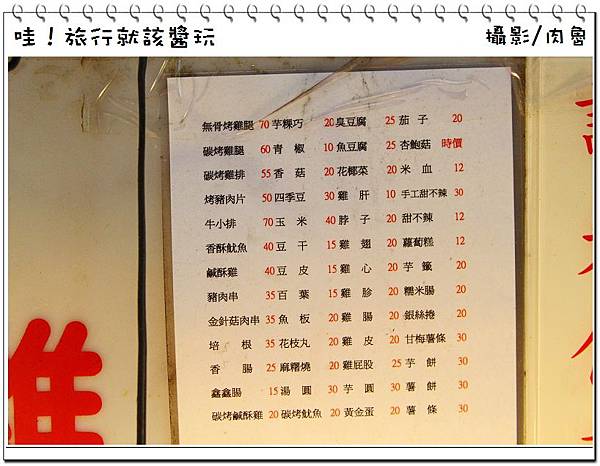 哇！旅行就該醬玩
攝影/肉魯
無骨烤雞腿 70 芋粿巧 20 臭豆腐 25 茄子 20
碳烤雞腿 60 青椒 10 魚豆腐 25 杏鮑菇 時價
碳烤雞排 55 香菇 20 花椰菜 20 米血 12
烤豬肉片 50 四季豆 30 雞肝 10 手工甜不辣 30
牛小排 70 玉米 40 脖子 20 甜不辣 20
香酥魷魚 40 豆干 15 雞翅 20 蘿蔔糕 12
鹹酥雞 40 豆皮 15 雞心 20 芋籤 20
豬肉串 35 百葉 15 雞胗 20 糯米腸 20
金針菇肉串 35 魚板 20 雞腸 20 銀絲捲 20
培根 35 花枝丸 20 雞皮 20 甘梅薯條 30
香腸 25 麻糬燒 20 雞屁股 25 芋餅 30
鑫鑫腸 15 湯圓 30 芋圓 30 薯餅 30
碳烤鹹酥雞 20 碳烤魷魚 20 黃金蛋 20 薯條 30
雞